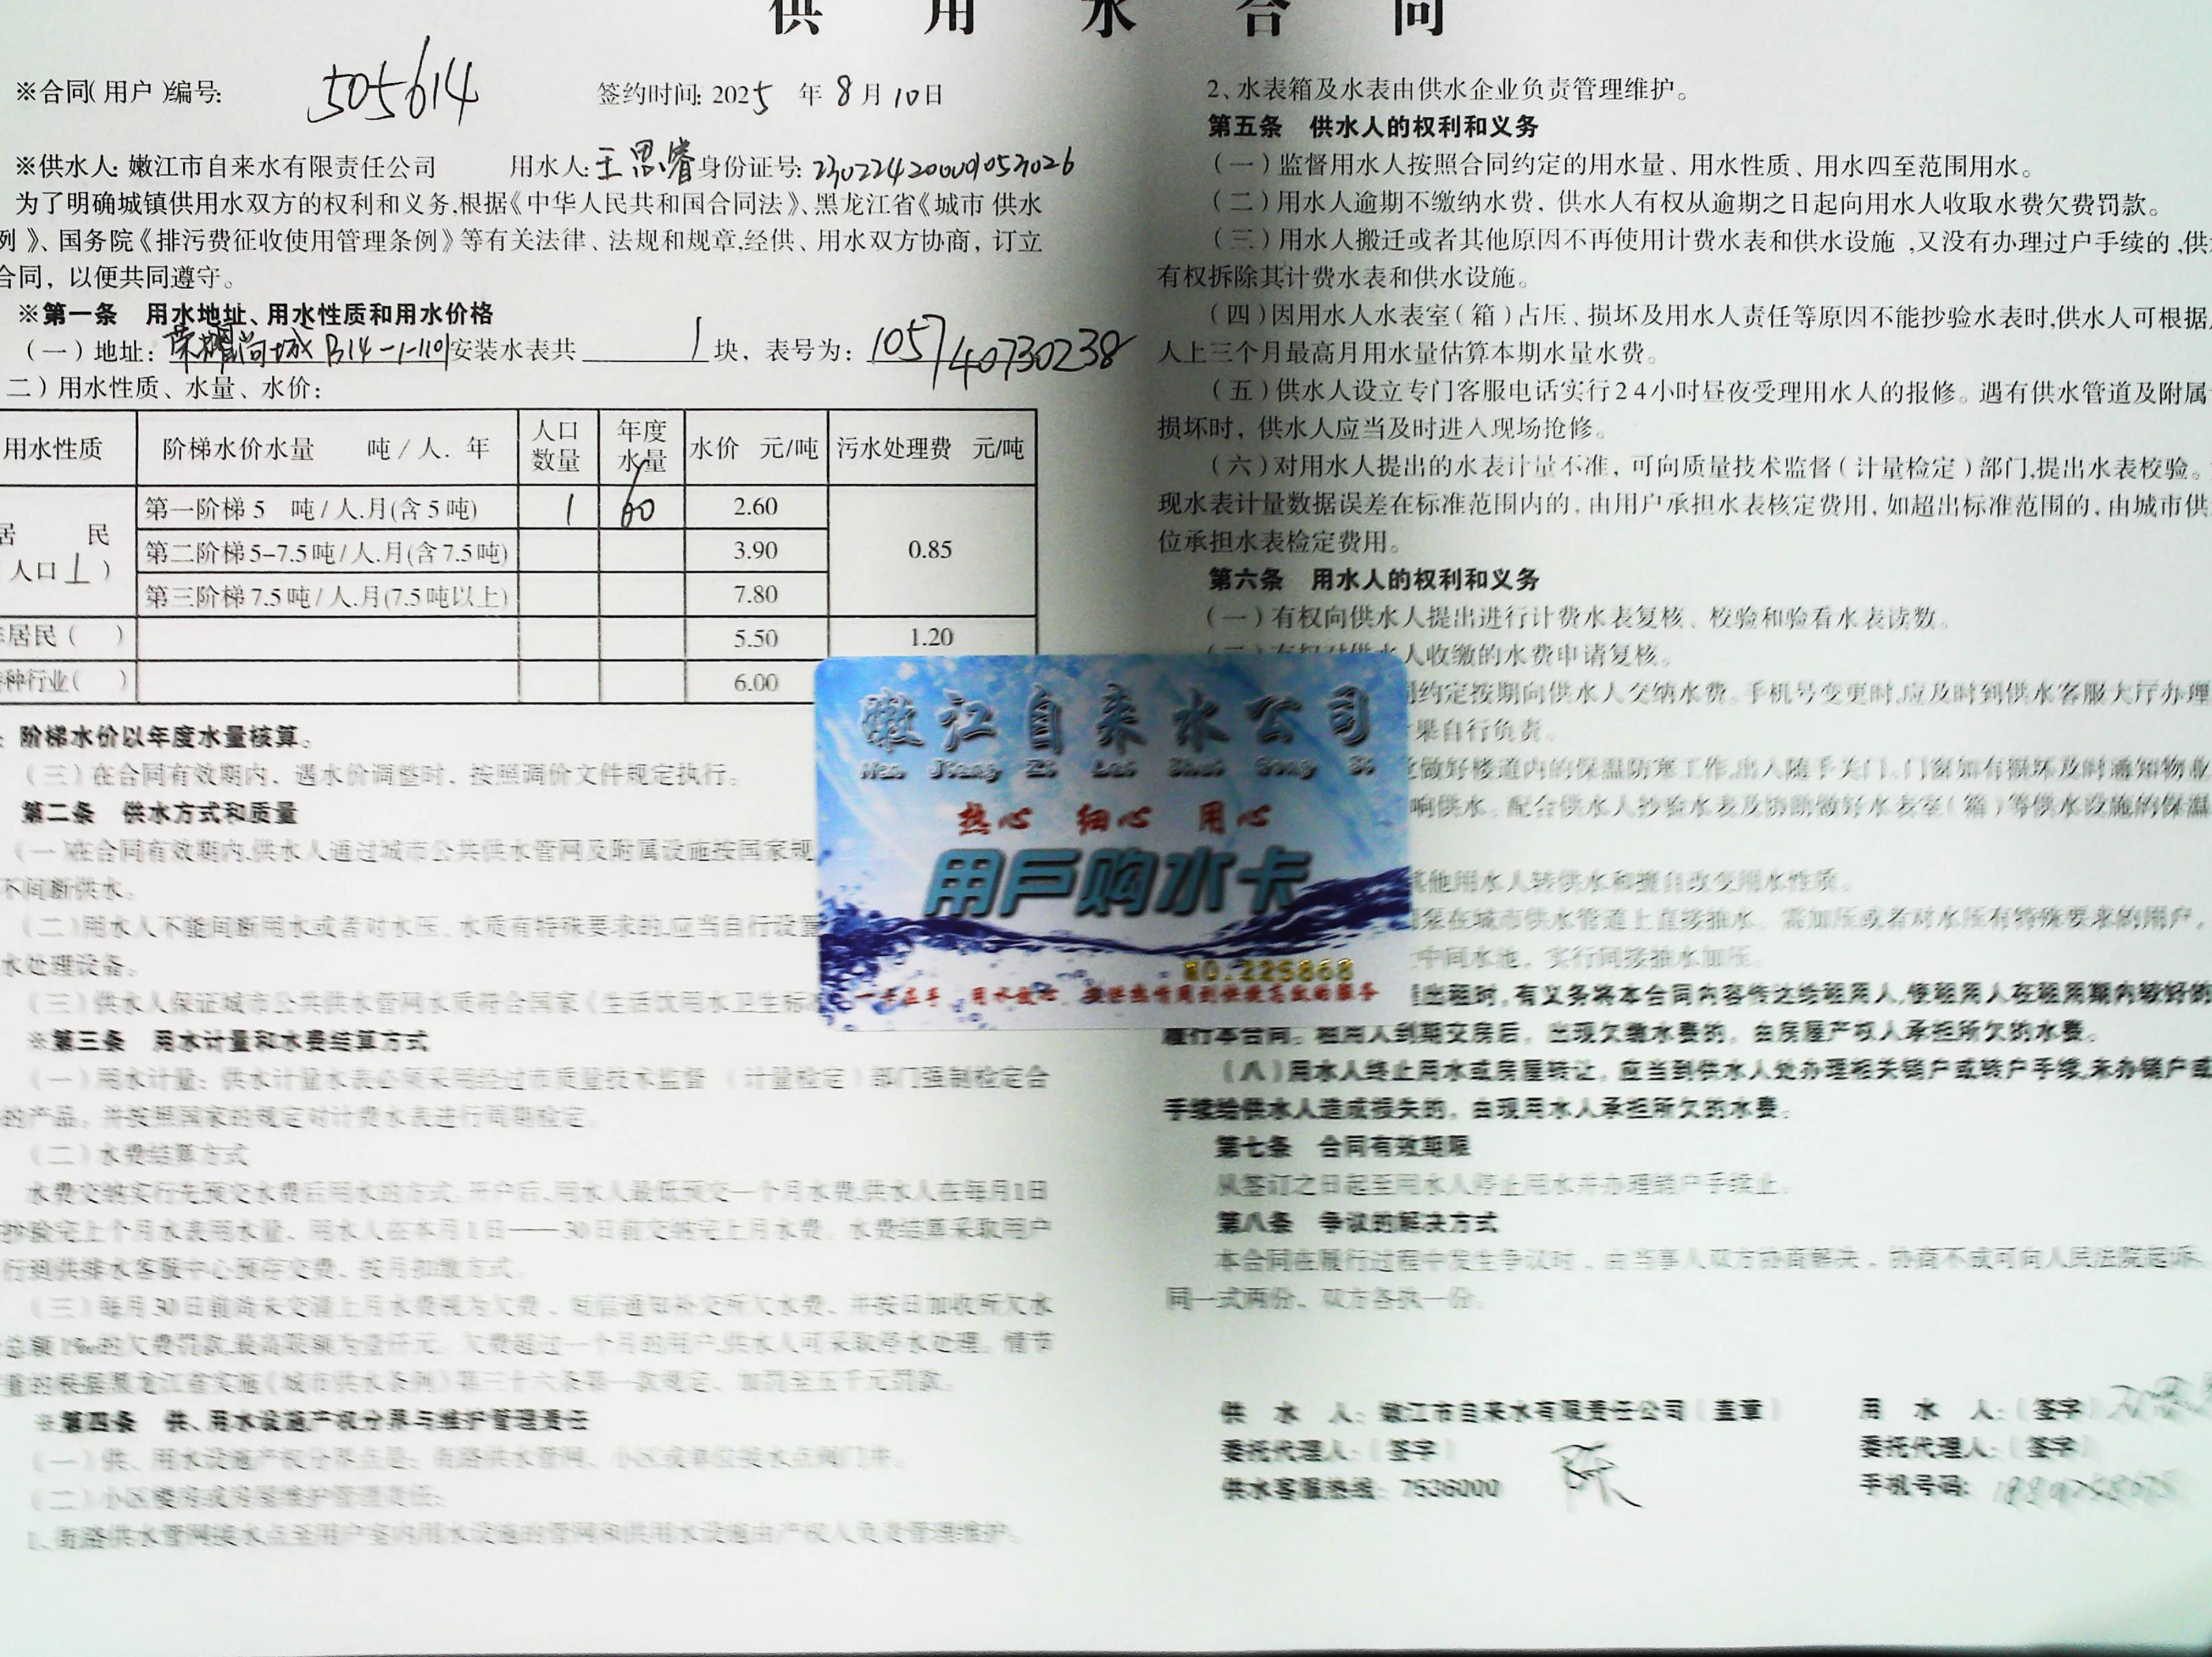 供用水合同
※合同(用户)编号: 505614 签约时间: 2025 年 8 月 10 日
※供水人: 嫩江市自来水有限责任公司 用水人: 王思睿 身份证号:
为了明确城镇供用水双方的权利和义务,根据《中华人民共和国合同法》、黑龙江省《城市供水
例》、国务院《排污费征收使用管理条例》等有关法律、法规和规章,经供、用水双方协商,订立
合同,以便共同遵守。
※第一条 用水地址、用水性质和用水价格
(一)地址: 荣耀尚城 B14-1-1101 安装水表共 1 块,表号为: 105740730238
二)用水性质、水量、水价:
用水性质 阶梯水价水量 吨/人.年 人口数量 年度水量 水价 元/吨 污水处理费 元/吨
居民 人口 1 ) 第一阶梯 5 吨/人.月(含 5 吨) 1 60 2.60 0.85
第二阶梯 5-7.5 吨/人.月(含 7.5 吨) 3.90
第三阶梯 7.5 吨/人.月(7.5 吨以上) 7.80
居民( ) 5.50 1.20
种行业( ) 6.00
:阶梯水价以年度水量核算。
(三)在合同有效期内、遇水价调整时、按照调价文件规定执行。
第二条 供水方式和质量
(一)在合同有效期内,供水人通过城市公共供水管网及附属设施按国家规
不间断供水。
(二)用水人不能间断用水或者对水压、水质有特殊要求的,应当自行设置
水处理设备。
(三)供水人保证城市公共供水管网水质符合国家《生活饮用水卫生标
※第三条 用水计量和水费结算方式
(一)用水计量:供水计量水表必须采用经过市质量技术监督(计量检定)部门强制检定合
的产品。并按照国家的规定对计费水表进行周期检定。
(二)水费结算方式
水费交纳实行先预交水费后用水的方式。开户后、用水人最低预交一个月水费,供水人在每月1日
抄验完上个月水表用水量、用水人在本月1日——30日前交纳完上月水费。水费结算采取用户
行到供排水客服中心预存交费、按月扣缴方式。
(三)每月30日前尚未交清上月水费视为欠费、短信通知补交所欠水费、并按日加收所欠水
总额1‰的欠费罚款,最高限额为壹仟元。欠费超过一个月的用户,供水人可采取停水处理。情节
重的根据黑龙江省实施《城市供水条例》第三十六条第一款规定、加罚至五千元罚款。
※第四条 供、用水设施产权分界与维护管理责任
(一)供、用水设施产权分界点是:街路供水管网、小区或单位接水点阀门井。
(二)小区楼房或房屋维护管理责任:
1、街路供水管网接水点至用户室内用水设施的管网和供用水设施由产权人负责管理维护。
2、水表箱及水表由供水企业负责管理维护。
第五条 供水人的权利和义务
(一)监督用水人按照合同约定的用水量、用水性质、用水四至范围用水。
(二)用水人逾期不缴纳水费,供水人有权从逾期之日起向用水人收取水费欠费罚款。
(三)用水人搬迁或者其他原因不再使用计费水表和供水设施,又没有办理过户手续的,供
有权拆除其计费水表和供水设施。
(四)因用水人水表室(箱)占压、损坏及用水人责任等原因不能抄验水表时,供水人可根据
人上三个月最高月用水量估算本期水量水费。
(五)供水人设立专门客服电话实行24小时昼夜受理用水人的报修。遇有供水管道及附属
损坏时,供水人应当及时进入现场抢修。
(六)对用水人提出的水表计量不准,可向质量技术监督(计量检定)部门,提出水表校验。
现水表计量数据误差在标准范围内的,由用户承担水表核定费用,如超出标准范围的,由城市供
位承担水表检定费用。
第六条 用水人的权利和义务
(一)有权向供水人提出进行计费水表复核、校验和验看水表读数。
(二)有权对供水人收缴的水费申请复核。
约定按期向供水人交纳水费。手机号变更时,应及时到供水客服大厅办理
果自行负责。
做好楼道内的保温防寒工作,出入随手关门。门窗如有损坏及时通知物业
响供水。配合供水人抄验水表及协助做好水表室(箱)等供水设施的保温
其他用水人转供水和擅自改变用水性质。
泵在城市供水管道上直接抽水。需加压或者对水压有特殊要求的用户,
中间水池,实行间接抽水加压。
出租时,有义务将本合同内容传达给租用人,使租用人在租用期内较好的
履行本合同。租用人到期交房后,出现欠缴水费的,由房屋产权人承担所欠的水费。
(八)用水人终止用水或房屋转让,应当到供水人处办理相关销户或转户手续,未办销户或
手续给供水人造成损失的,由现用水人承担所欠的水费。
第七条 合同有效期限
从签订之日起至用水人停止用水并办理销户手续止。
第八条 争议的解决方式
本合同在履行过程中发生争议时,由当事人双方协商解决,协商不成可向人民法院起诉。
同一式两份、双方各执一份。
供水人:嫩江市自来水有限责任公司(盖章) 用水人:(签字)
委托代理人:(签字) 委托代理人:(签字)
供水客服热线:7536000 手机号码:
嫩江自来水公司
Nen Jiang Zi Lai Shui Gong Si
热心 细心 用心
用户购水卡
NO.225868